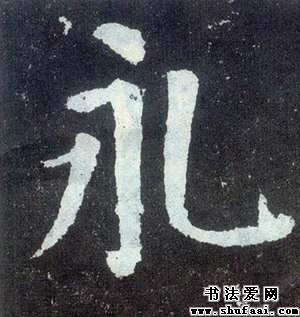 礼
书法爱网
www.shufaai.com